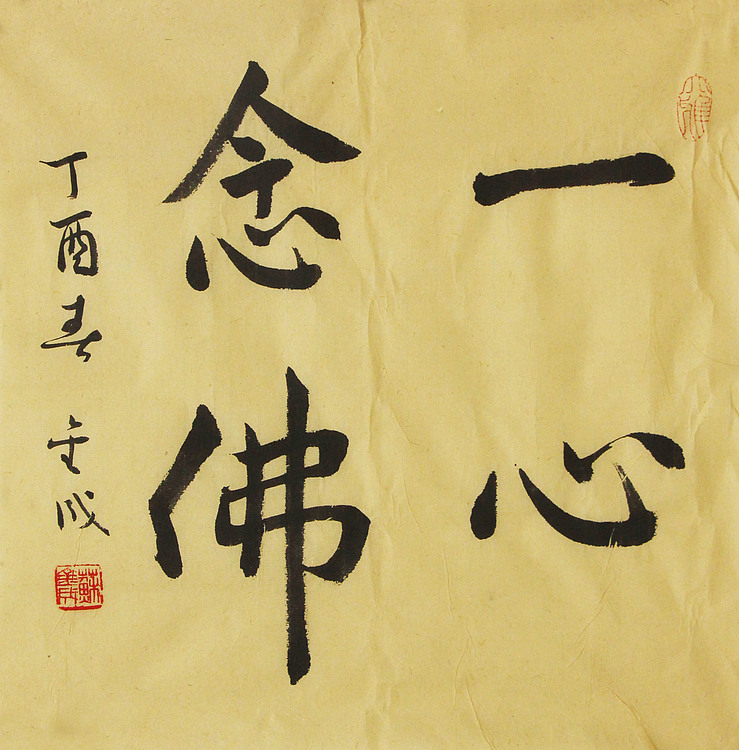 一心
念佛
丁酉春 金成